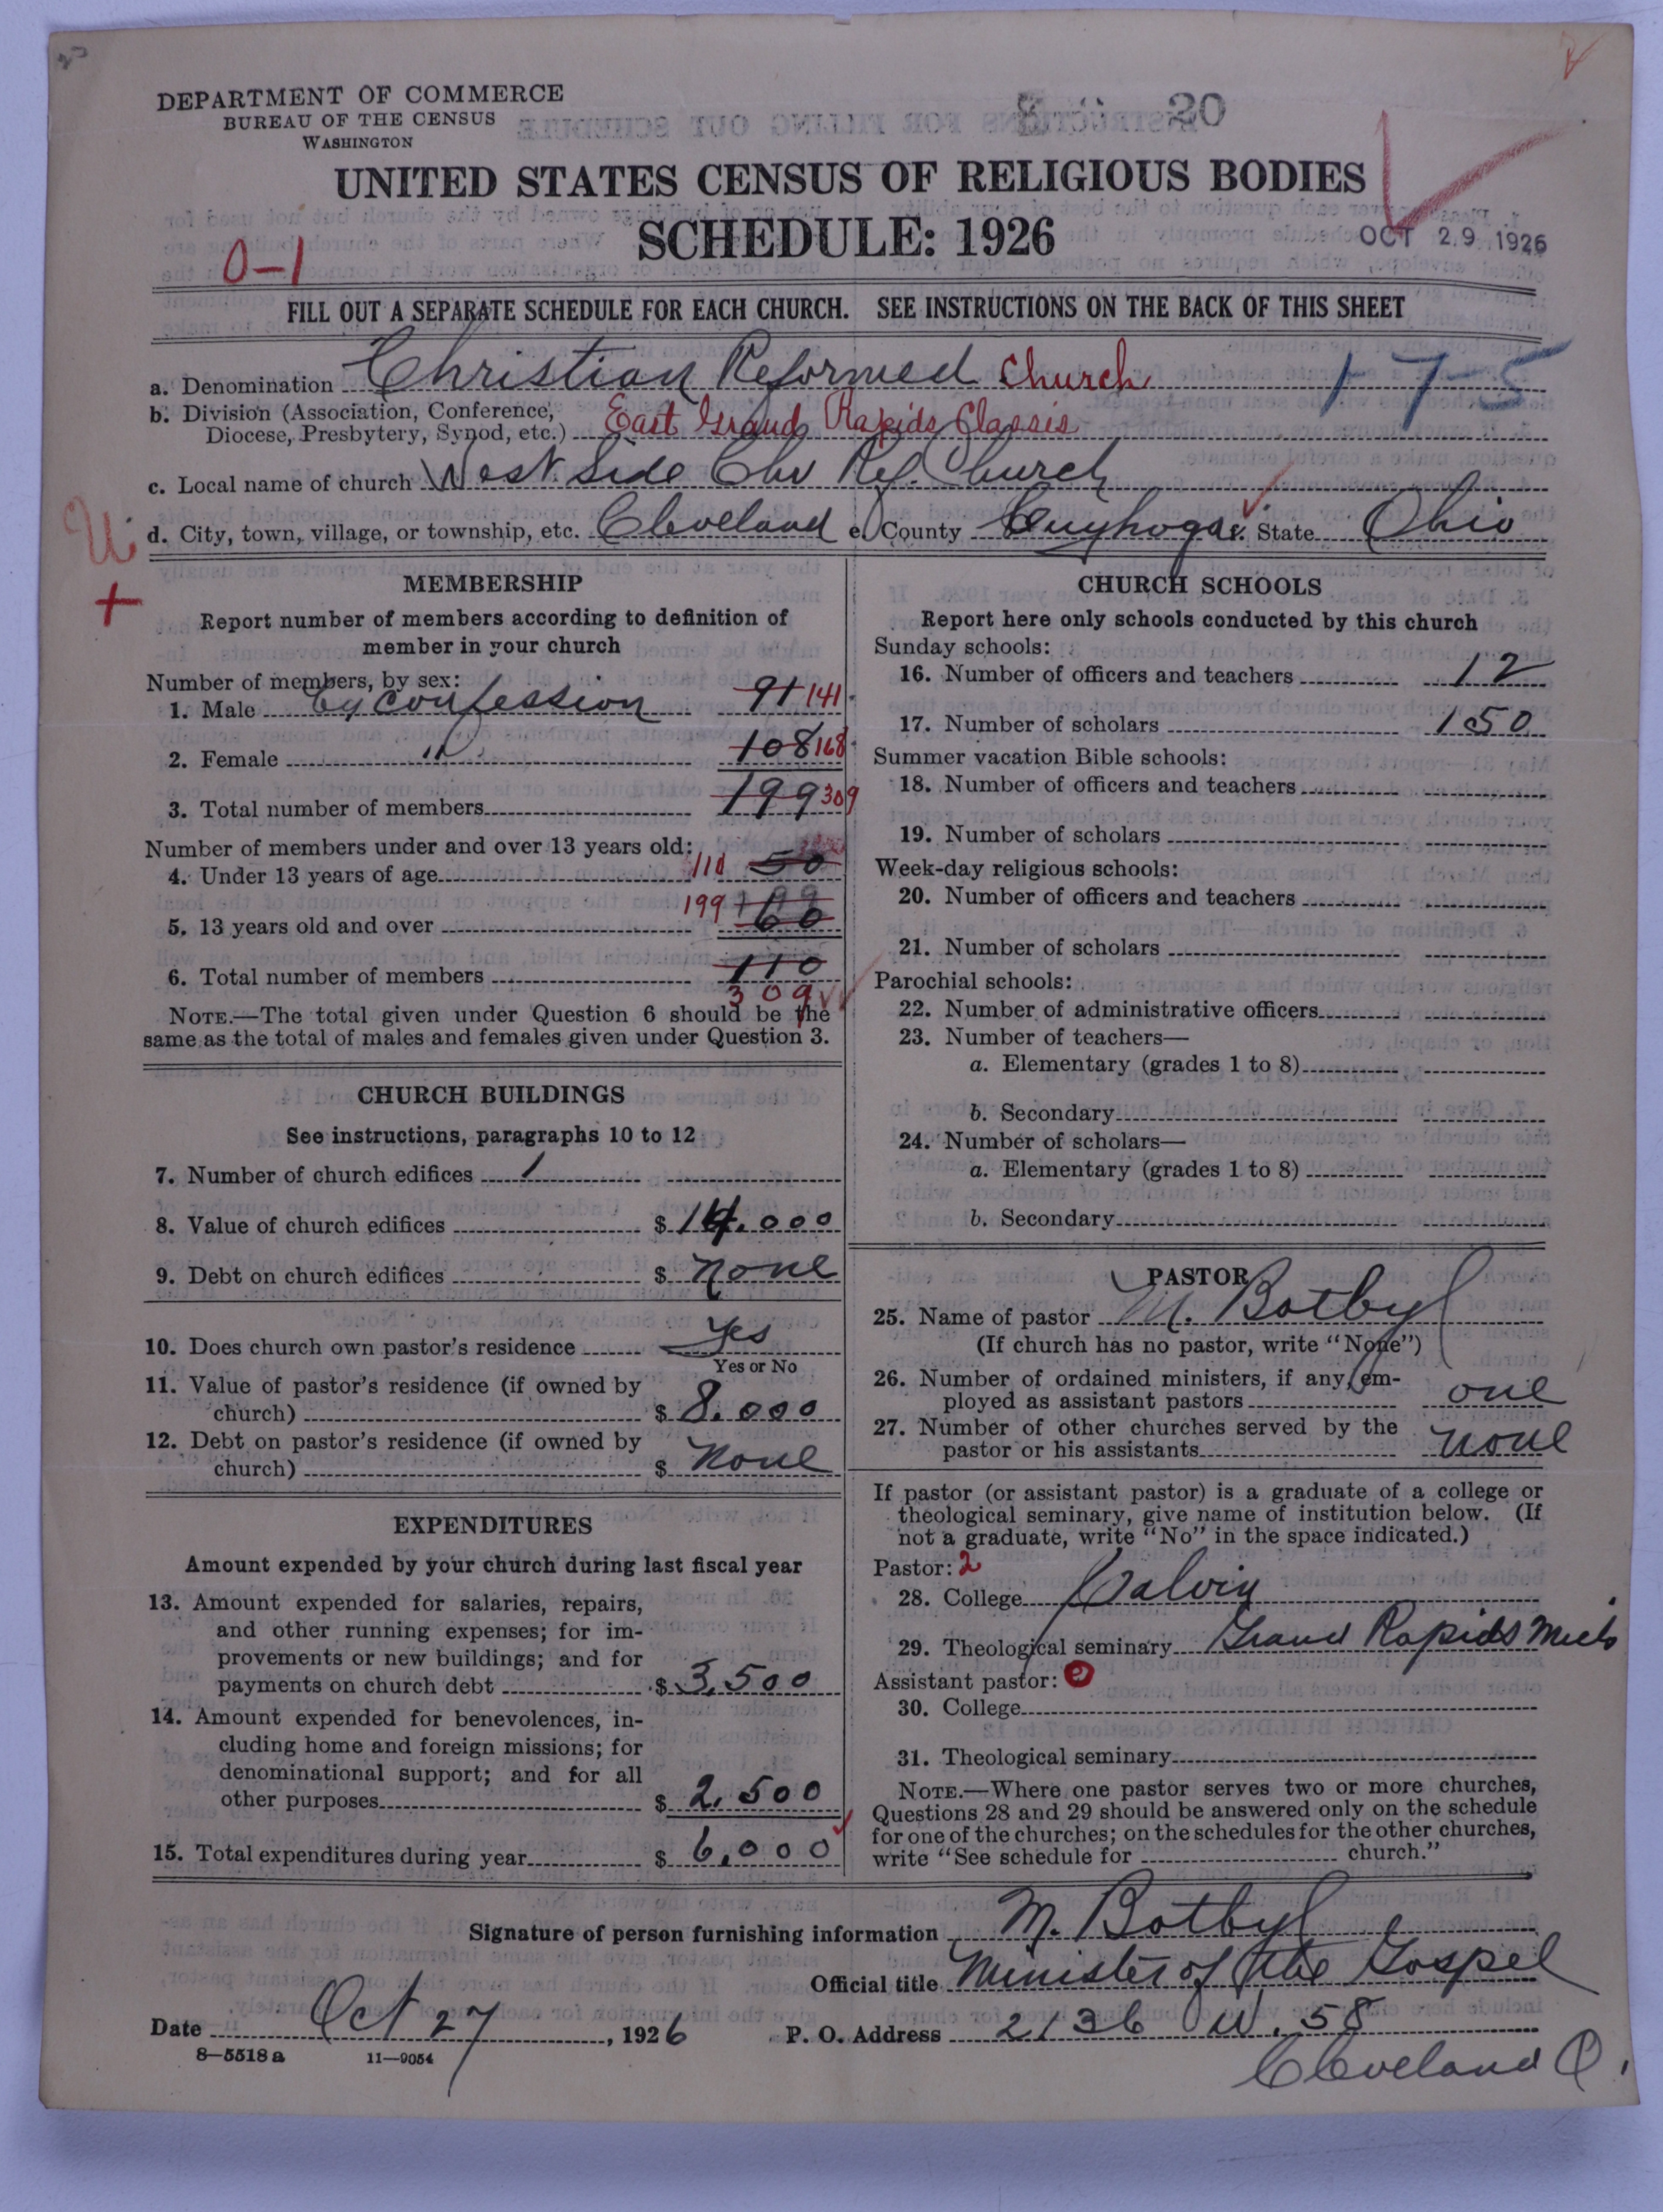 DEPARTMENT OF COMMERCE
BUREAU OF THE CENSUS
WASHINGTON
20
UNITED STATES CENSUS OF RELIGIOUS BODIES
SCHEDULE: 1926
OCT 29 1926
0-1
FILL OUT A SEPARATE SCHEDULE FOR EACH CHURCH. SEE INSTRUCTIONS ON THE BACK OF THIS SHEET
a. Denomination Christian Reformed Church 1-7-5
b. Division (Association, Conference,
Diocese, Presbytery, Synod, etc.) East Grand Rapids Classis
c. Local name of church West Side Chr Ref. Church
d. City, town, village, or township, etc. Cleveland e. County Cuyhoga f. State Ohio
MEMBERSHIP
Report number of members according to definition of
member in your church
Number of members, by sex:
1. Male by confession 91 141
2. Female " 108 168
3. Total number of members 199 309
Number of members under and over 13 years old:
4. Under 13 years of age 110 50
5. 13 years old and over 199 60
6. Total number of members 110
309
NOTE.—The total given under Question 6 should be the
same as the total of males and females given under Question 3.
CHURCH BUILDINGS
See instructions, paragraphs 10 to 12
7. Number of church edifices 1
8. Value of church edifices $ 14.000
9. Debt on church edifices $ none
10. Does church own pastor's residence Yes
Yes or No
11. Value of pastor's residence (if owned by
church) $ 8.000
12. Debt on pastor's residence (if owned by
church) $ None
EXPENDITURES
Amount expended by your church during last fiscal year
13. Amount expended for salaries, repairs,
and other running expenses; for im-
provements or new buildings; and for
payments on church debt $ 3,500
14. Amount expended for benevolences, in-
cluding home and foreign missions; for
denominational support; and for all
other purposes $ 2,500
15. Total expenditures during year $ 6,000
CHURCH SCHOOLS
Report here only schools conducted by this church
Sunday schools:
16. Number of officers and teachers 12
17. Number of scholars 150
Summer vacation Bible schools:
18. Number of officers and teachers
19. Number of scholars
Week-day religious schools:
20. Number of officers and teachers
21. Number of scholars
Parochial schools:
22. Number of administrative officers
23. Number of teachers—
a. Elementary (grades 1 to 8)
b. Secondary
24. Number of scholars—
a. Elementary (grades 1 to 8)
b. Secondary
PASTOR
25. Name of pastor M. Botbyl
(If church has no pastor, write "None")
26. Number of ordained ministers, if any, em-
ployed as assistant pastors one
27. Number of other churches served by the
pastor or his assistants none
If pastor (or assistant pastor) is a graduate of a college or
theological seminary, give name of institution below. (If
not a graduate, write "No" in the space indicated.)
Pastor: 2
28. College Calvin
29. Theological seminary Grand Rapids Mich
Assistant pastor:
30. College
31. Theological seminary
NOTE.—Where one pastor serves two or more churches,
Questions 28 and 29 should be answered only on the schedule
for one of the churches; on the schedules for the other churches,
write "See schedule for church."
Signature of person furnishing information M. Botbyl
Official title Minister of the Gospel
Date Oct 27, 1926 P. O. Address 2136 W. 58
Cleveland O.
8—5518a 11—9054